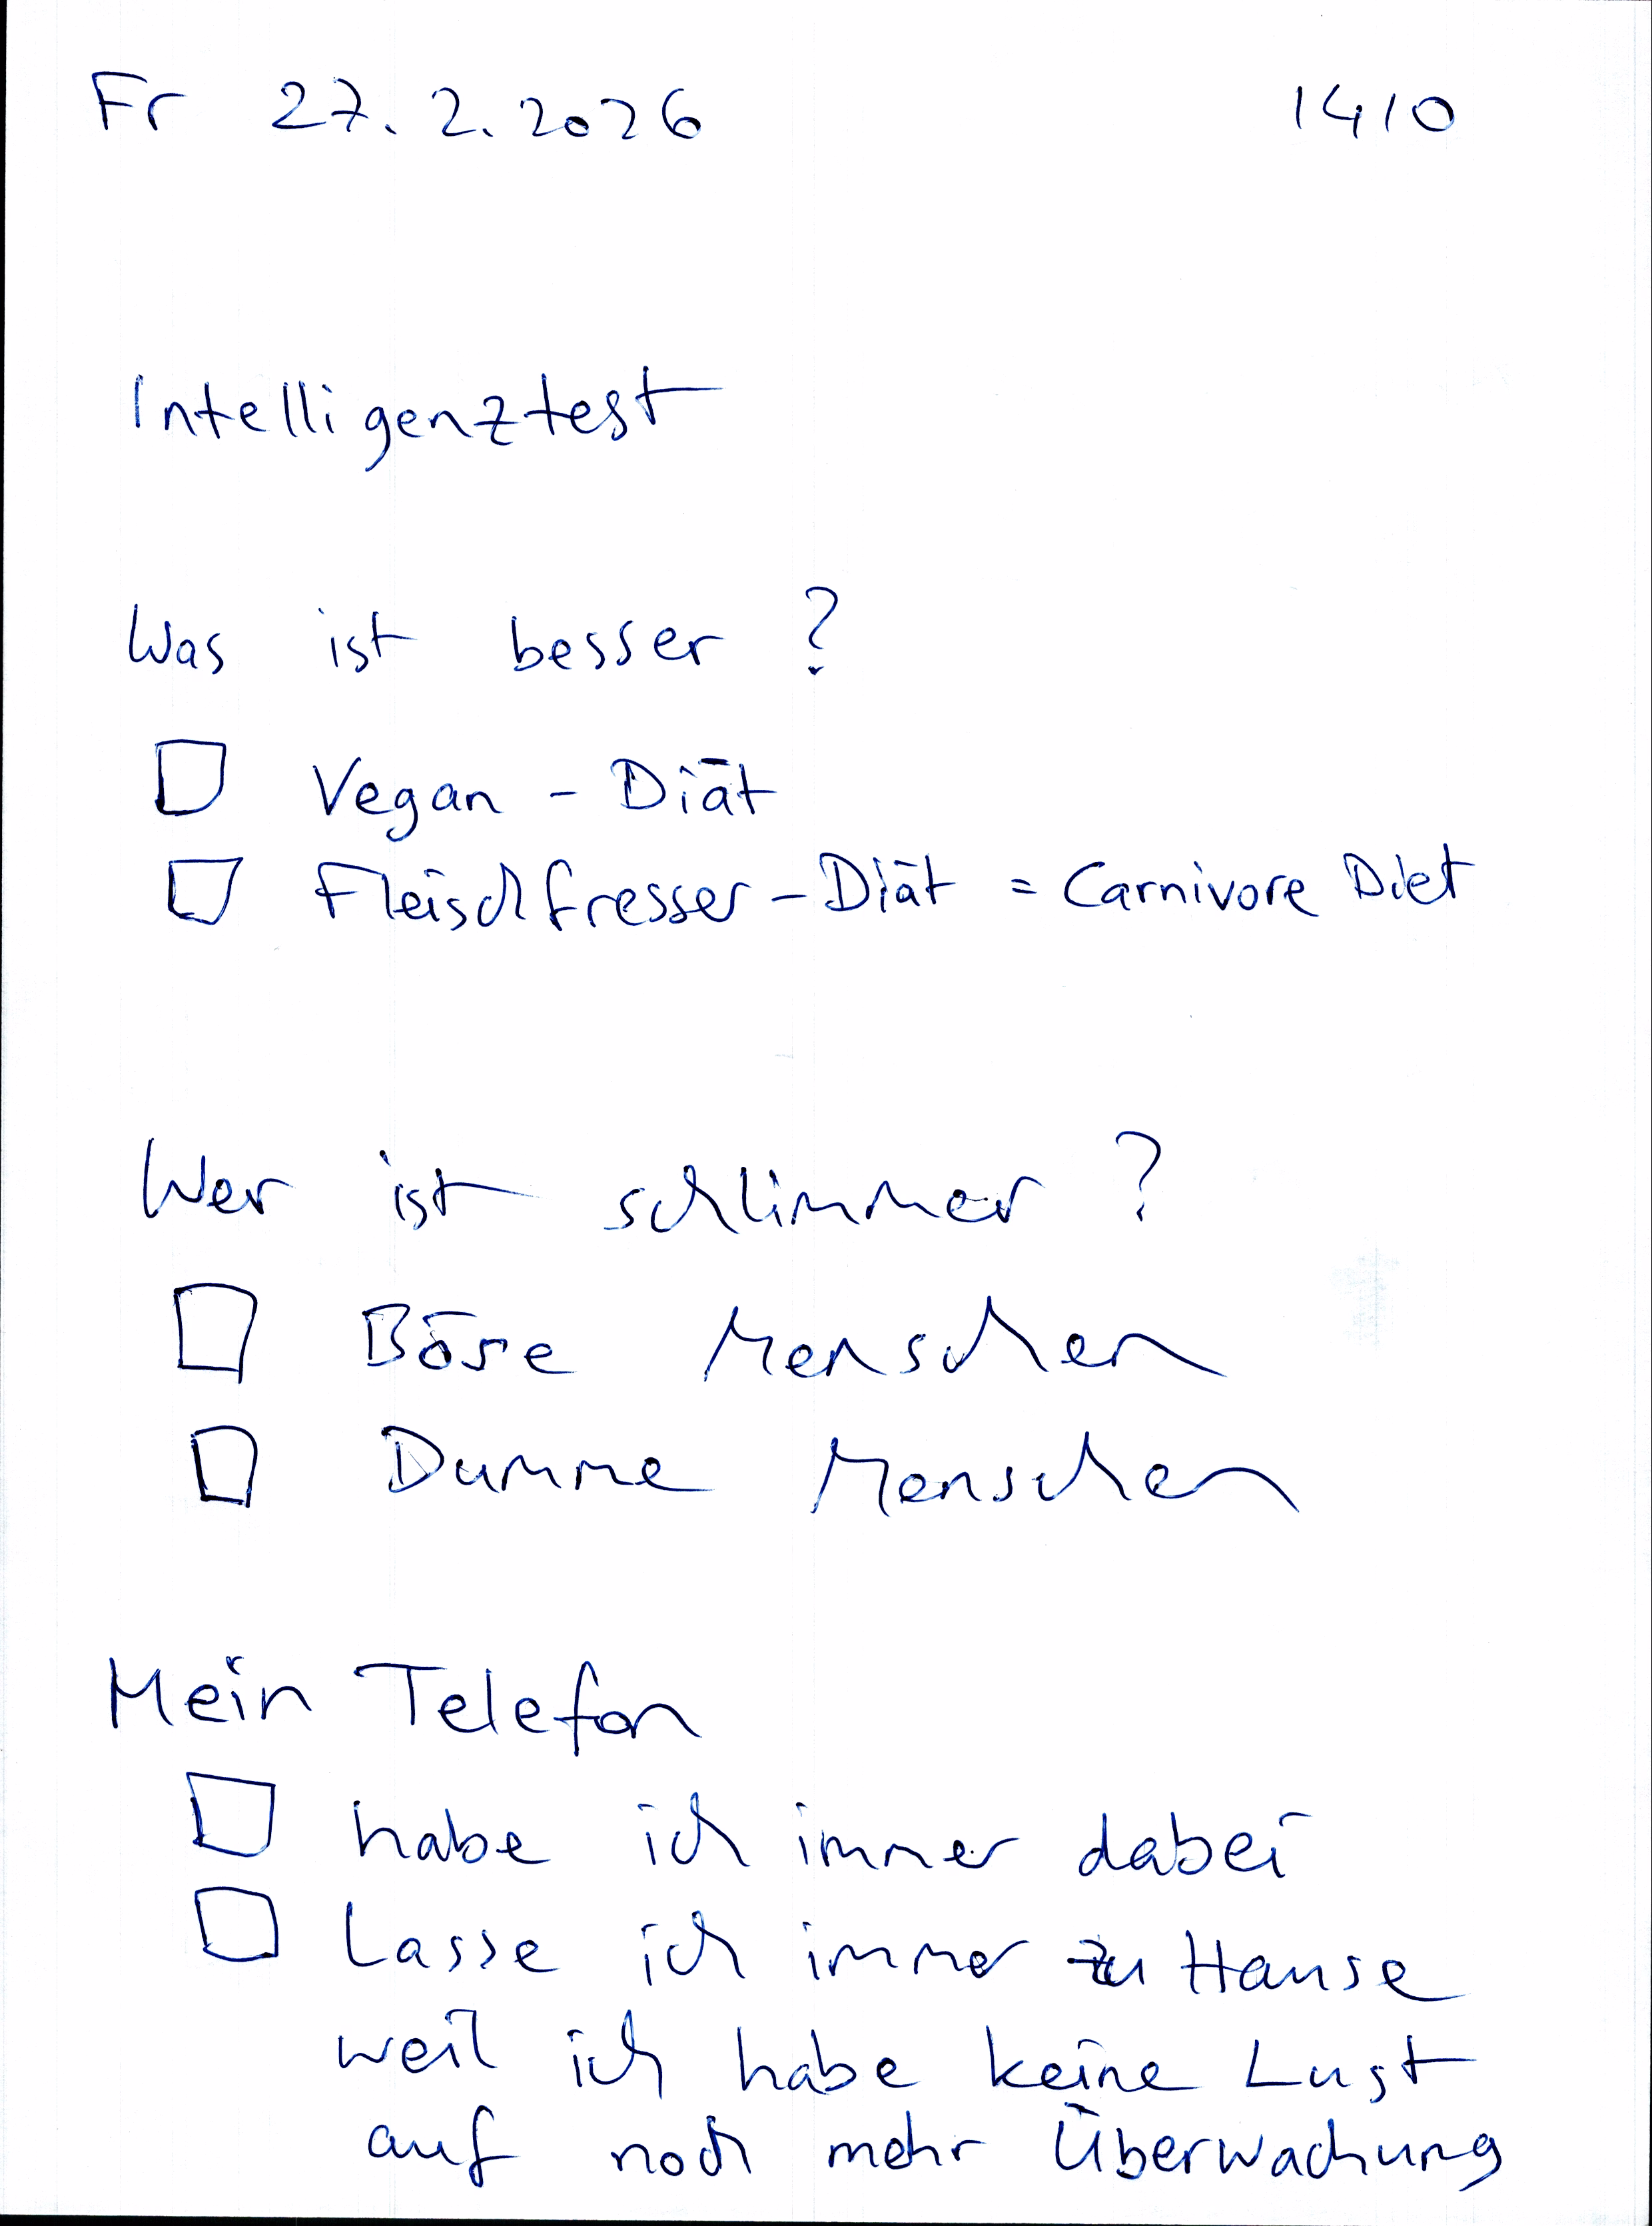 Fr 27.2.2026 1410
Intelligenztest
Was ist besser ?
Vegan - Diät
Fleischfresser - Diät = Carnivore Diet
Wer ist schlimmer ?
Böse Menschen
Dumme Menschen
Mein Telefon
habe ich immer dabei
Lasse ich immer zu Hause
weil ich habe keine Lust
auf noch mehr Überwachung